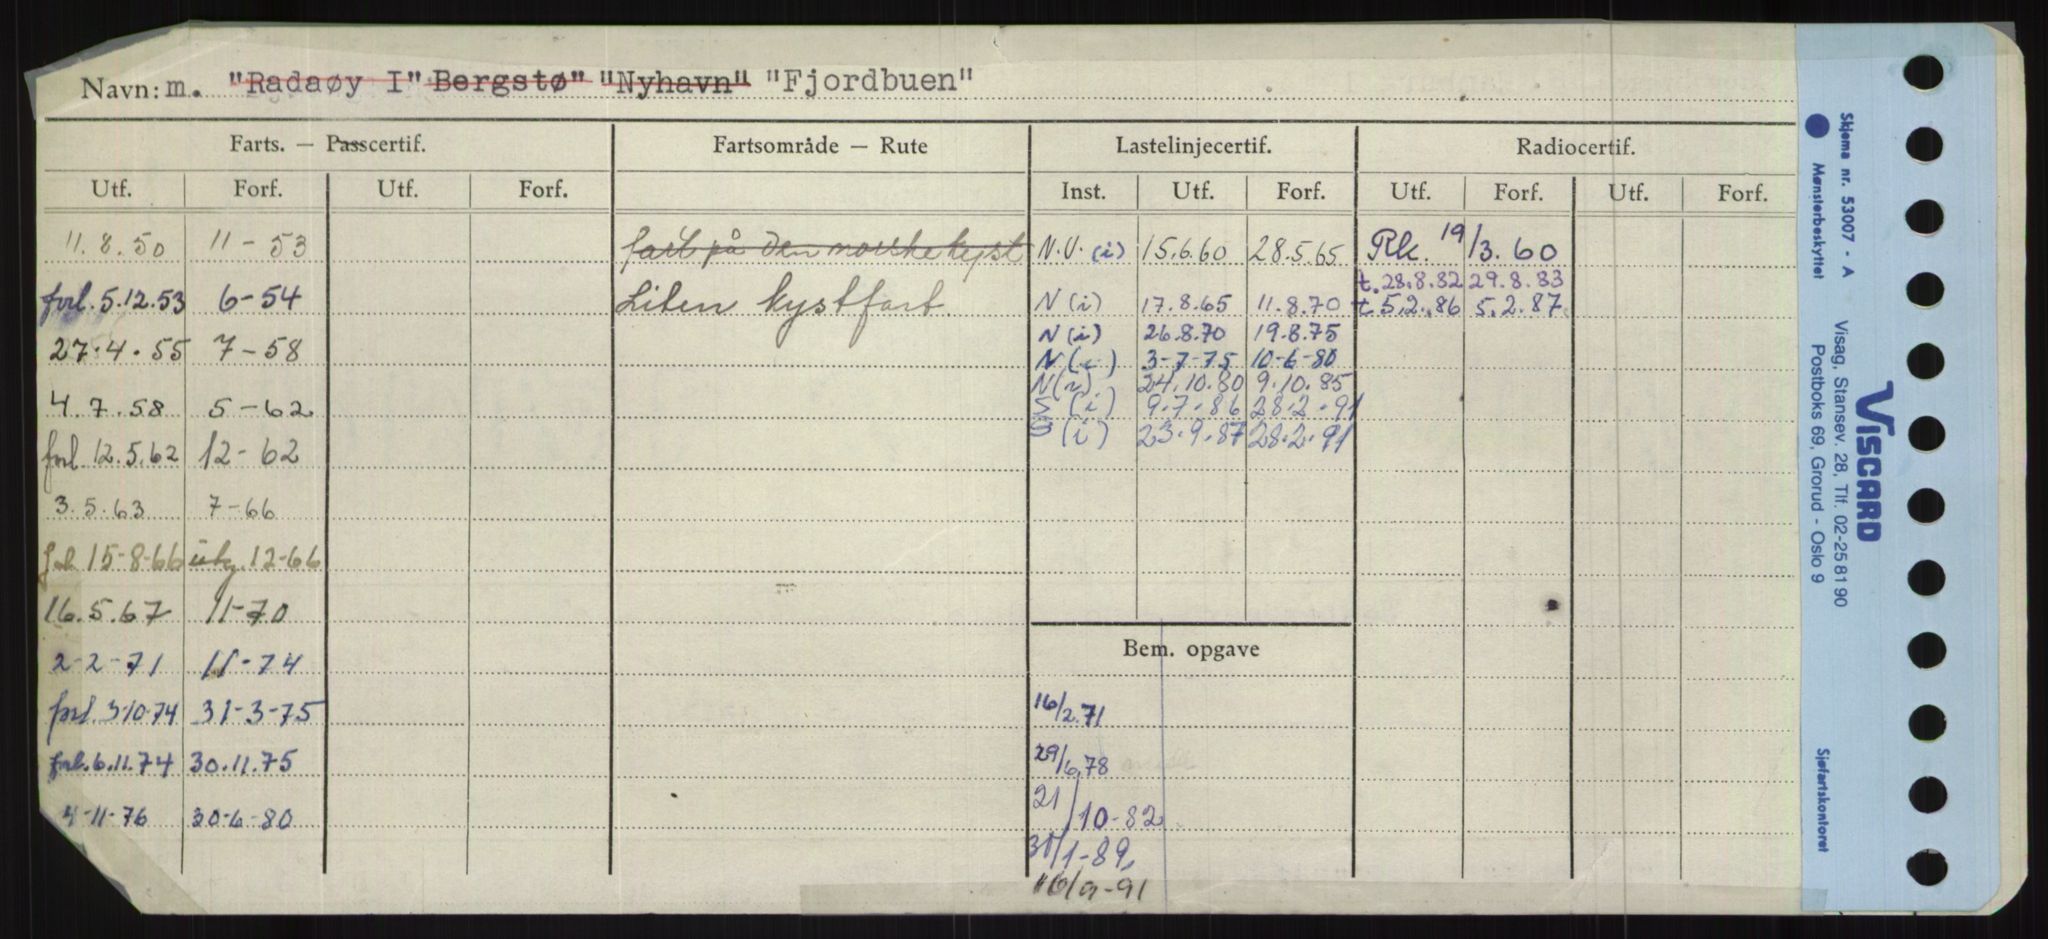 Navn: m. "Radaøy I" Bergstø" "Nyhavn" "Fjordbuen"
Farts. — Passcertif. Fartsområde — Rute Lastelinjecertif. Radiocertif.
Utf. Forf. Utf. Forf. Inst. Utf. Forf. Utf. Forf. Utf. Forf.
11.8.50 11-53 fart på den norske kyst N.V. (i) 15.6.60 28.5.65 Rk. 19/3.60
t. 28.8.82 29.8.83
forl. 5.12.53 6-54 Liten kystfart N (i) 17.8.65 11.8.70 t. 5.2.86 5.2.87
N (i) 26.8.70 19.8.75
27.4.55 7-58 N (i) 3-7-75 10-6-80
N (i) 24.10.80 9.10.85
4.7.58 5-62 S (i) 9.7.86 28.2.91
S (i) 23.9.87 28.2.91
forl. 12.5.62 12-62
3.5.63 7-66
forl. 15-8-66 12-66
16.5.67 11-70
Bem. opgave
2-2-71 11-74
forl. 3-10-74 31-3-75 16/2.71
forl. 6.11.74 30.11.75 29/6.78
4-11-76 30-6-80 21/10-82
31/1-89
16/9-91
Skjema nr. 53007 - A
Mønsterbeskyttet
VISCARD
Visag, Stansev. 28, Tlf. 02-25 81 90
Postboks 69, Grorud - Oslo 9
Sjøfartskontoret